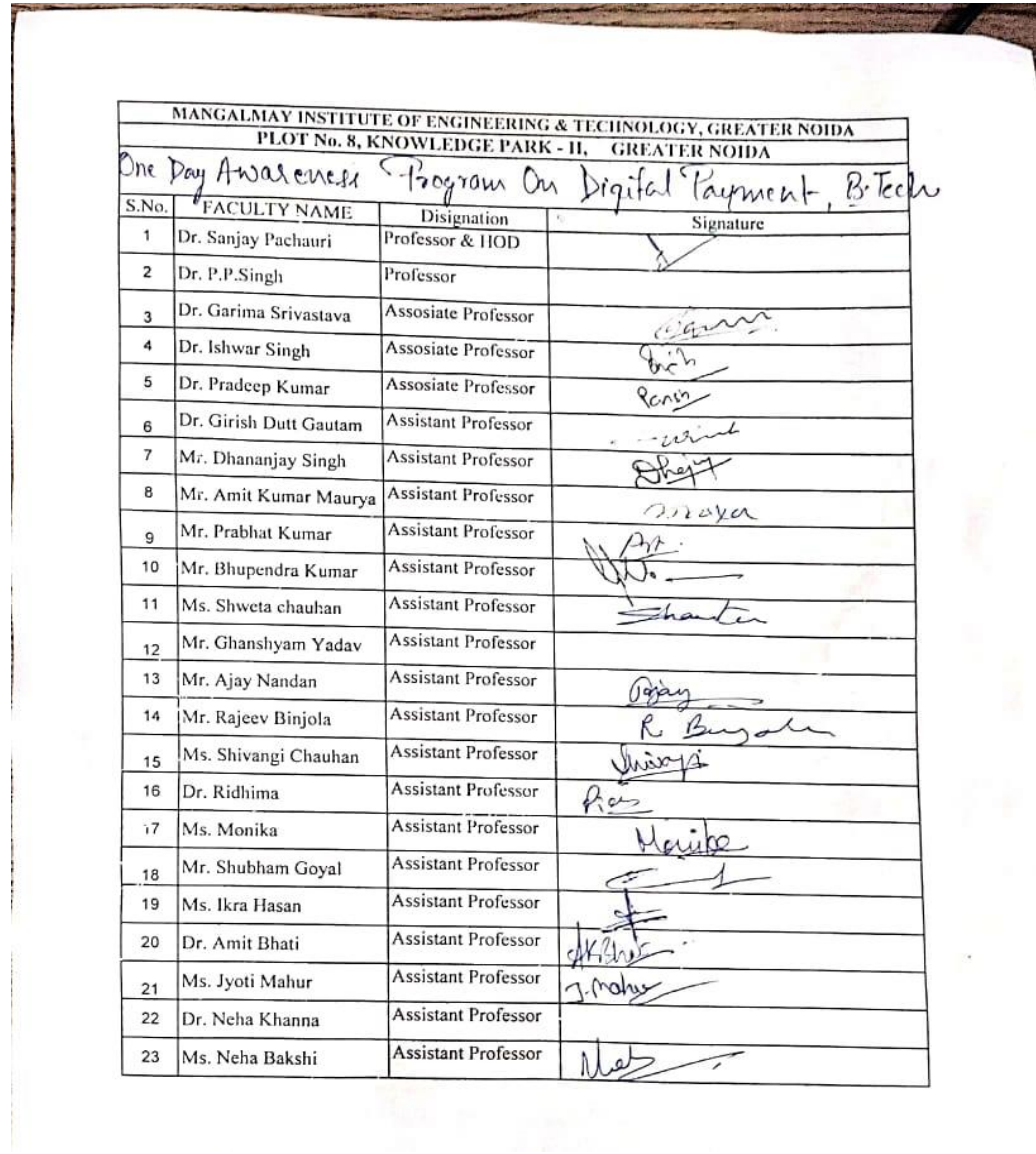 MANGALMAY INSTITUTE OF ENGINEERING & TECHNOLOGY, GREATER NOIDA
PLOT No. 8, KNOWLEDGE PARK - II, GREATER NOIDA
One Day Awareness Program On Digital Payment, B.Tech
S.No. FACULTY NAME Disignation Signature
1 Dr. Sanjay Pachauri Professor & HOD
2 Dr. P.P.Singh Professor
3 Dr. Garima Srivastava Assosiate Professor
4 Dr. Ishwar Singh Assosiate Professor
5 Dr. Pradeep Kumar Assosiate Professor
6 Dr. Girish Dutt Gautam Assistant Professor
7 Mr. Dhananjay Singh Assistant Professor
8 Mr. Amit Kumar Maurya Assistant Professor
9 Mr. Prabhat Kumar Assistant Professor
10 Mr. Bhupendra Kumar Assistant Professor
11 Ms. Shweta chauhan Assistant Professor
12 Mr. Ghanshyam Yadav Assistant Professor
13 Mr. Ajay Nandan Assistant Professor Ajay
14 Mr. Rajeev Binjola Assistant Professor
15 Ms. Shivangi Chauhan Assistant Professor
16 Dr. Ridhima Assistant Professor
17 Ms. Monika Assistant Professor Monika
18 Mr. Shubham Goyal Assistant Professor
19 Ms. Ikra Hasan Assistant Professor
20 Dr. Amit Bhati Assistant Professor
21 Ms. Jyoti Mahur Assistant Professor J. Mahur
22 Dr. Neha Khanna Assistant Professor
23 Ms. Neha Bakshi Assistant Professor